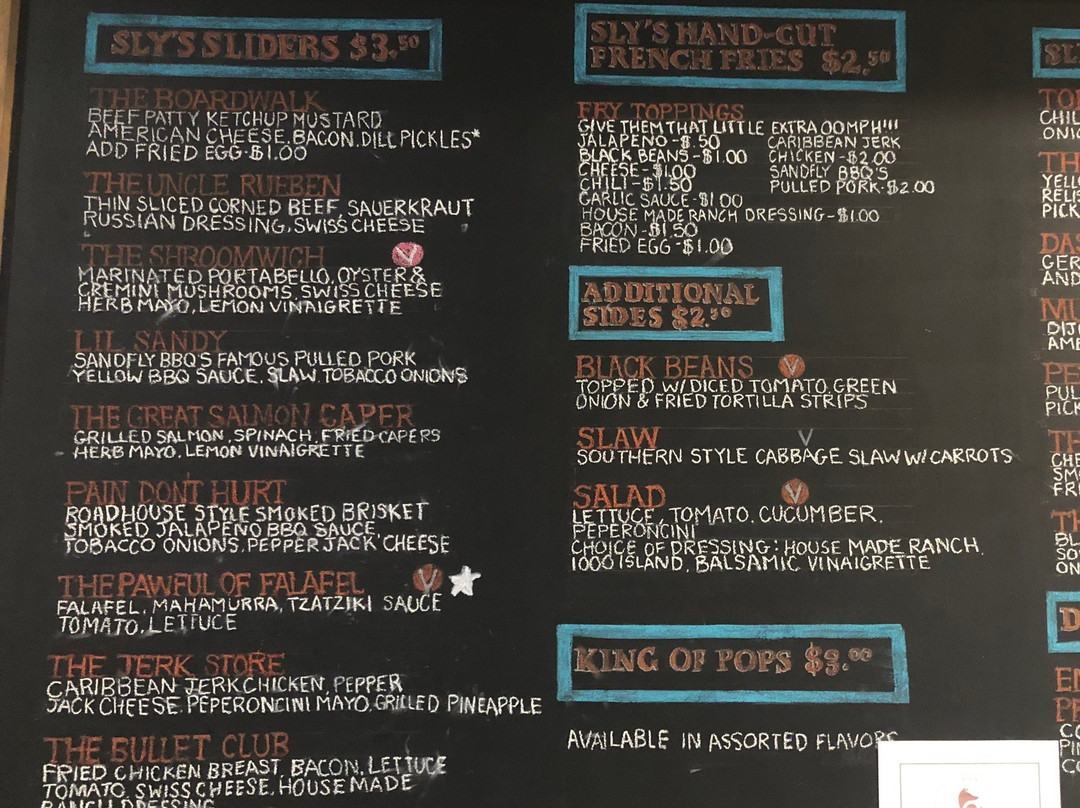 SLY'S SLIDERS $3.50
THE BOARDWALK
BEEF PATTY KETCHUP MUSTARD
AMERICAN CHEESE, BACON, DILL PICKLES*
ADD FRIED EGG-$1.00
THE UNCLE RUEBEN
THIN SLICED CORNED BEEF, SAUERKRAUT
RUSSIAN DRESSING, SWISS CHEESE
THE SHROOMWICH V
MARINATED PORTABELLO, OYSTER &
CREMINI MUSHROOMS, SWISS CHEESE
HERB MAYO, LEMON VINAIGRETTE
LIL SANDY
SANDFLY BBQ'S FAMOUS PULLED PORK
YELLOW BBQ SAUCE, SLAW, TOBACCO ONIONS
THE GREAT SALMON CAPER
GRILLED SALMON, SPINACH, FRIED CAPERS
HERB MAYO, LEMON VINAIGRETTE
PAIN DON'T HURT
ROADHOUSE STYLE SMOKED BRISKET
SMOKED JALAPENO BBQ SAUCE
TOBACCO ONIONS, PEPPER JACK CHEESE
THE PAWFUL OF FALAFEL V
FALAFEL, MAHAMURRA, TZATZIKI SAUCE
TOMATO, LETTUCE
THE JERK STORE
CARIBBEAN JERK CHICKEN, PEPPER
JACK CHEESE, PEPERONCINI MAYO, GRILLED PINEAPPLE
THE BULLET CLUB
FRIED CHICKEN BREAST, BACON, LETTUCE
TOMATO, SWISS CHEESE, HOUSE MADE
RANCH DRESSING
SLY'S HAND-CUT
FRENCH FRIES $2.50
FRY TOPPINGS
GIVE THEM THAT LITTLE EXTRA OOMPH!!!
JALAPENO-$.50
BLACK BEANS-$1.00
CHEESE-$1.00
CHILI-$1.50
GARLIC SAUCE-$1.00
HOUSE MADE RANCH DRESSING-$1.00
BACON-$1.50
FRIED EGG-$1.00
CARIBBEAN JERK
CHICKEN-$2.00
SANDFLY BBQ'S
PULLED PORK-$2.00
ADDITIONAL
SIDES $2.50
BLACK BEANS V
TOPPED W/DICED TOMATO, GREEN
ONION & FRIED TORTILLA STRIPS
SLAW V
SOUTHERN STYLE CABBAGE SLAW W/ CARROTS
SALAD V
LETTUCE, TOMATO, CUCUMBER,
PEPERONCINI
CHOICE OF DRESSING: HOUSE MADE RANCH,
1000 ISLAND, BALSAMIC VINAIGRETTE
KING OF POPS $3.00
AVAILABLE IN ASSORTED FLAVORS